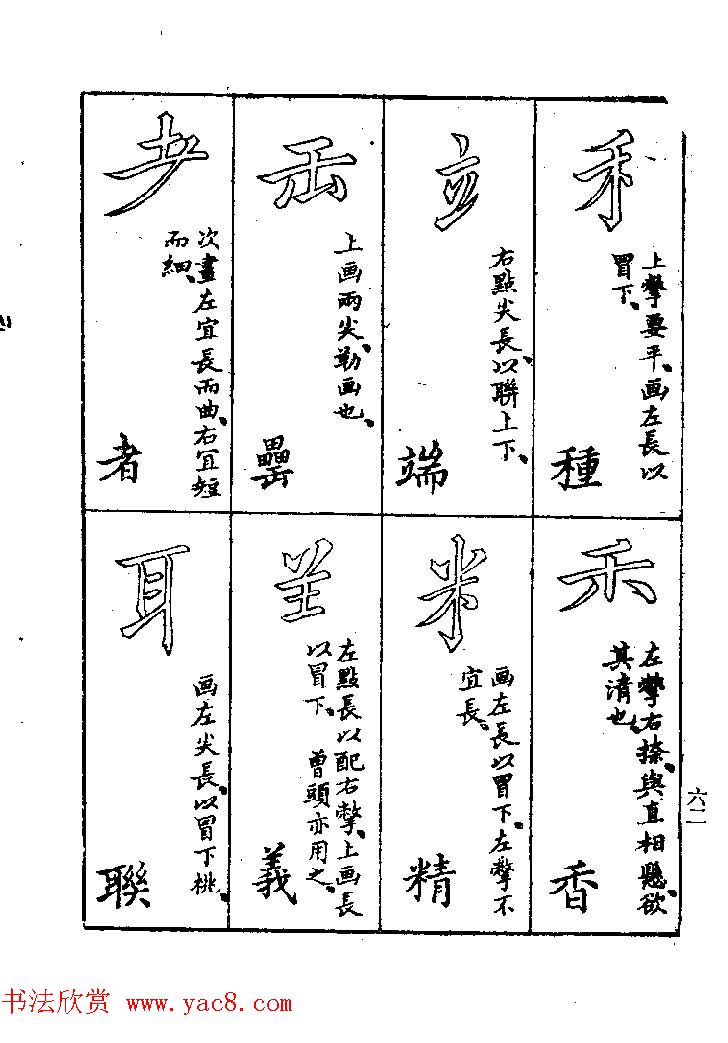 禾
上撆要平、画左長以
冐下、
種
立
右點尖長、以聯上下、
端
缶
上画兩尖、勒画也、
罍
耂
次畫左宜長而曲、右宜短
而細、
者
禾
左撆右捺、與直相懸、欲
其清也、
香
米
画左長以冐下、左撆不
宜長、
精
𦍌
左點長以配右撆、上画長
以冐下、曾頭亦用之、
義
耳
画左尖長、以冐下挑、
聯
六二
书法欣赏 www.yac8.com